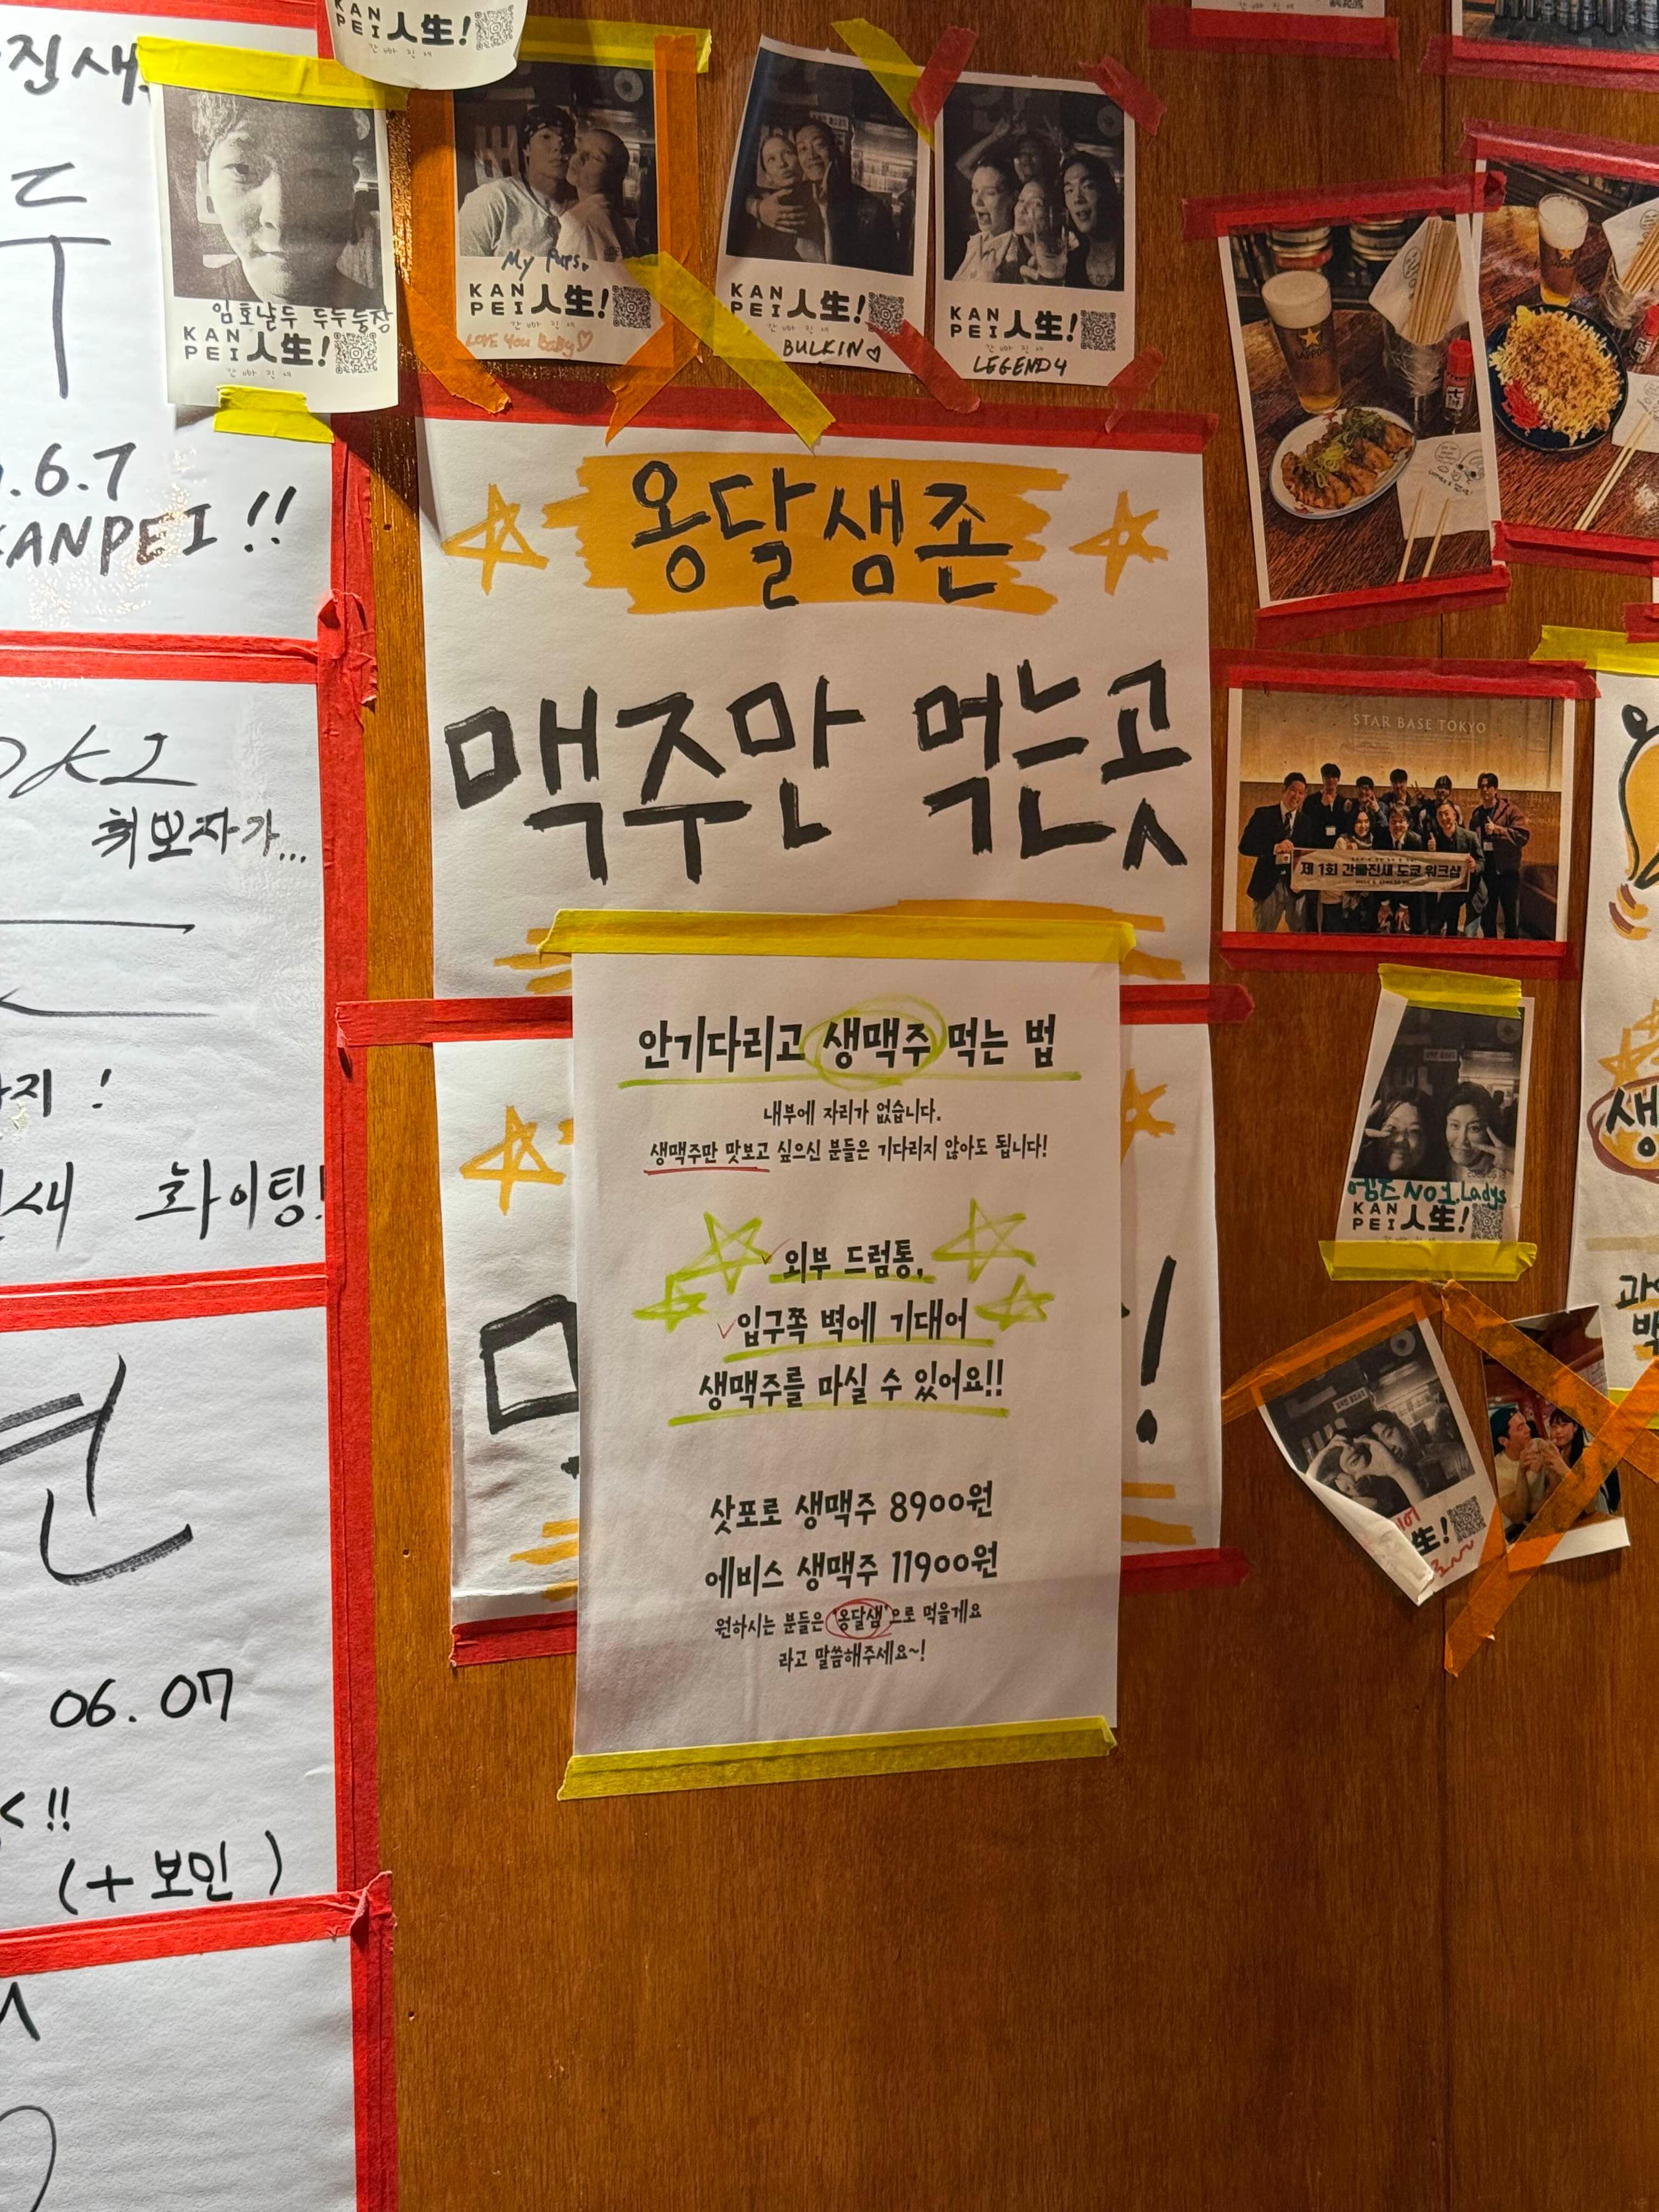 KAN
PEI 人生!
간 빠 진 새
진새
두
.6.7
KANPEI !!
임호날두 두두등장
KAN
PEI 人生!
간 빠 진 새
My furs.
KAN
PEI 人生!
간 빠 진 새
LOVE You BaBy♡
KAN
PEI 人生!
간 빠 진 새
BULKIN♡
KAN
PEI 人生!
간 빠 진 새
LEGEND4
SAPPORO
옹달생존
맥주만 먹는곳
STAR BASE TOKYO
제 1회 간빠진새 도쿄 워크샵
취뽀자가...
지 !
새 화이팅!
06.07
!!
(+ 보민)
안기다리고 생맥주 먹는 법
내부에 자리가 없습니다.
생맥주만 맛보고 싶으신 분들은 기다리지 않아도 됩니다!
외부 드럼통,
입구쪽 벽에 기대어
생맥주를 마실 수 있어요!!
삿포로 생맥주 8900원
에비스 생맥주 11900원
원하시는 분들은 '옹달샘'으로 먹을게요
라고 말씀해주세요~!
!
NO1.Ladys
KAN
PEI 人生!
간 빠 진 새
生!
생